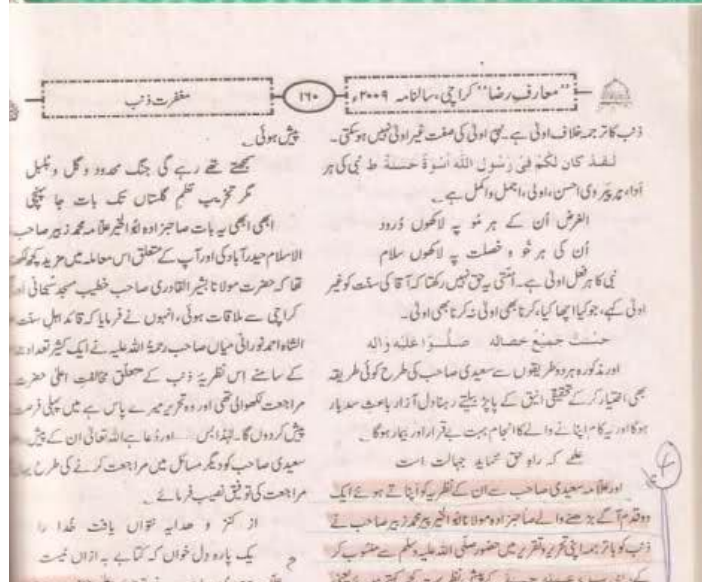 "معارف رضا" کراچی، سالنامہ ۲۰۰۹ء
۱۶۰
مغفرت ذنب
ذنب کا ترجمہ خلاف اولیٰ ہے۔ نبی اولیٰ کی صفت غیر اولیٰ نہیں ہوسکتی۔
لَقَدْ كَانَ لَكُمْ فِی رَسُولِ اللّٰهِ اُسْوَةٌ حَسَنَةٌ ط نبی کی ہر
اَدا، ہر پیروی احسن، اولیٰ، اجمل و اکمل ہے۔
الغرض اُن کے ہر مُو پہ لاکھوں دُرود
اُن کی ہر خُو و خصلت پہ لاکھوں سلام
نبی کا ہر فعل اولیٰ ہے۔ اُمتی یہ حق نہیں رکھتا کہ آقا کی سنّت کو غیر
اولیٰ کہے، جو کیا اچھا کیا، کرنا بھی اولیٰ نہ کرنا بھی اولیٰ۔
حسنت جمیع خصاله صلّوا علیه واٰله
اور مذکورہ ہر دو طریقوں سے سعیدی صاحب کی طرح کوئی طریقہ
بھی اختیار کرکے تحقیقی انیق کے پاپڑ بیلتے رہنا دل آزار باعث سدبار
ہوگا اور یہ کام اپنانے والے کا انجام بہت بے قرار اور بیمار ہوگا۔
علمے کہ راہ حق نماید جہالت است
اور علّامہ سعیدی صاحب سے ان کے نظریہ کو اپناتے ہوئے ایک
دو قدم آگے بڑھنے والے صاحبزادہ مولانا ابو الخیر پیر محمد زبیر صاحب نے
ذنب کو باترجمہ اپنی تحریر و تقریر میں حضور صلّی اللہ علیہ وسلم سے منسوب کر
پیش ہوئی۔
سمجھتے تھے رہے گی جنگ محدود و گل و بلبل
مگر تخریب نظم گلستاں تک بات جا پہنچی
ابھی ابھی یہ بات صاحبزادہ ابو الخیر علّامہ محمد زبیر صاحب
الاسلام حیدرآباد کی اور آپ کے متعلق اس معاملہ میں مزید کچھ لکھ
تھا کہ حضرت مولانا بشیر القادری صاحب خطیب مسجد سُبحانی
کراچی سے ملاقات ہوئی، انہوں نے فرمایا کہ قائد اہل سنّت
الشاہ احمد نورانی میاں صاحب رحمۃ اللہ علیہ نے ایک کثیر تعداد
کے سامنے اِس نظریۂ ذنب کے متعلق مخالفت اعلیٰ حضرت
مراجعت لکھوالی تھی اور وہ تحریر میرے پاس ہے میں پہلی فرصت
پیش کردوں گا۔ لہٰذا بس اور دُعا ہے اللہ تعالیٰ ان کے پیش
سعیدی صاحب کو دیگر مسائل میں مراجعت کرنے کی طرح یہاں
مراجعت کی توفیق نصیب فرمائے۔
از کنز و ھدایہ نتواں یافت خُدا را
یک پارہ دل خواں کہ کتابے بہ ازاں نیست